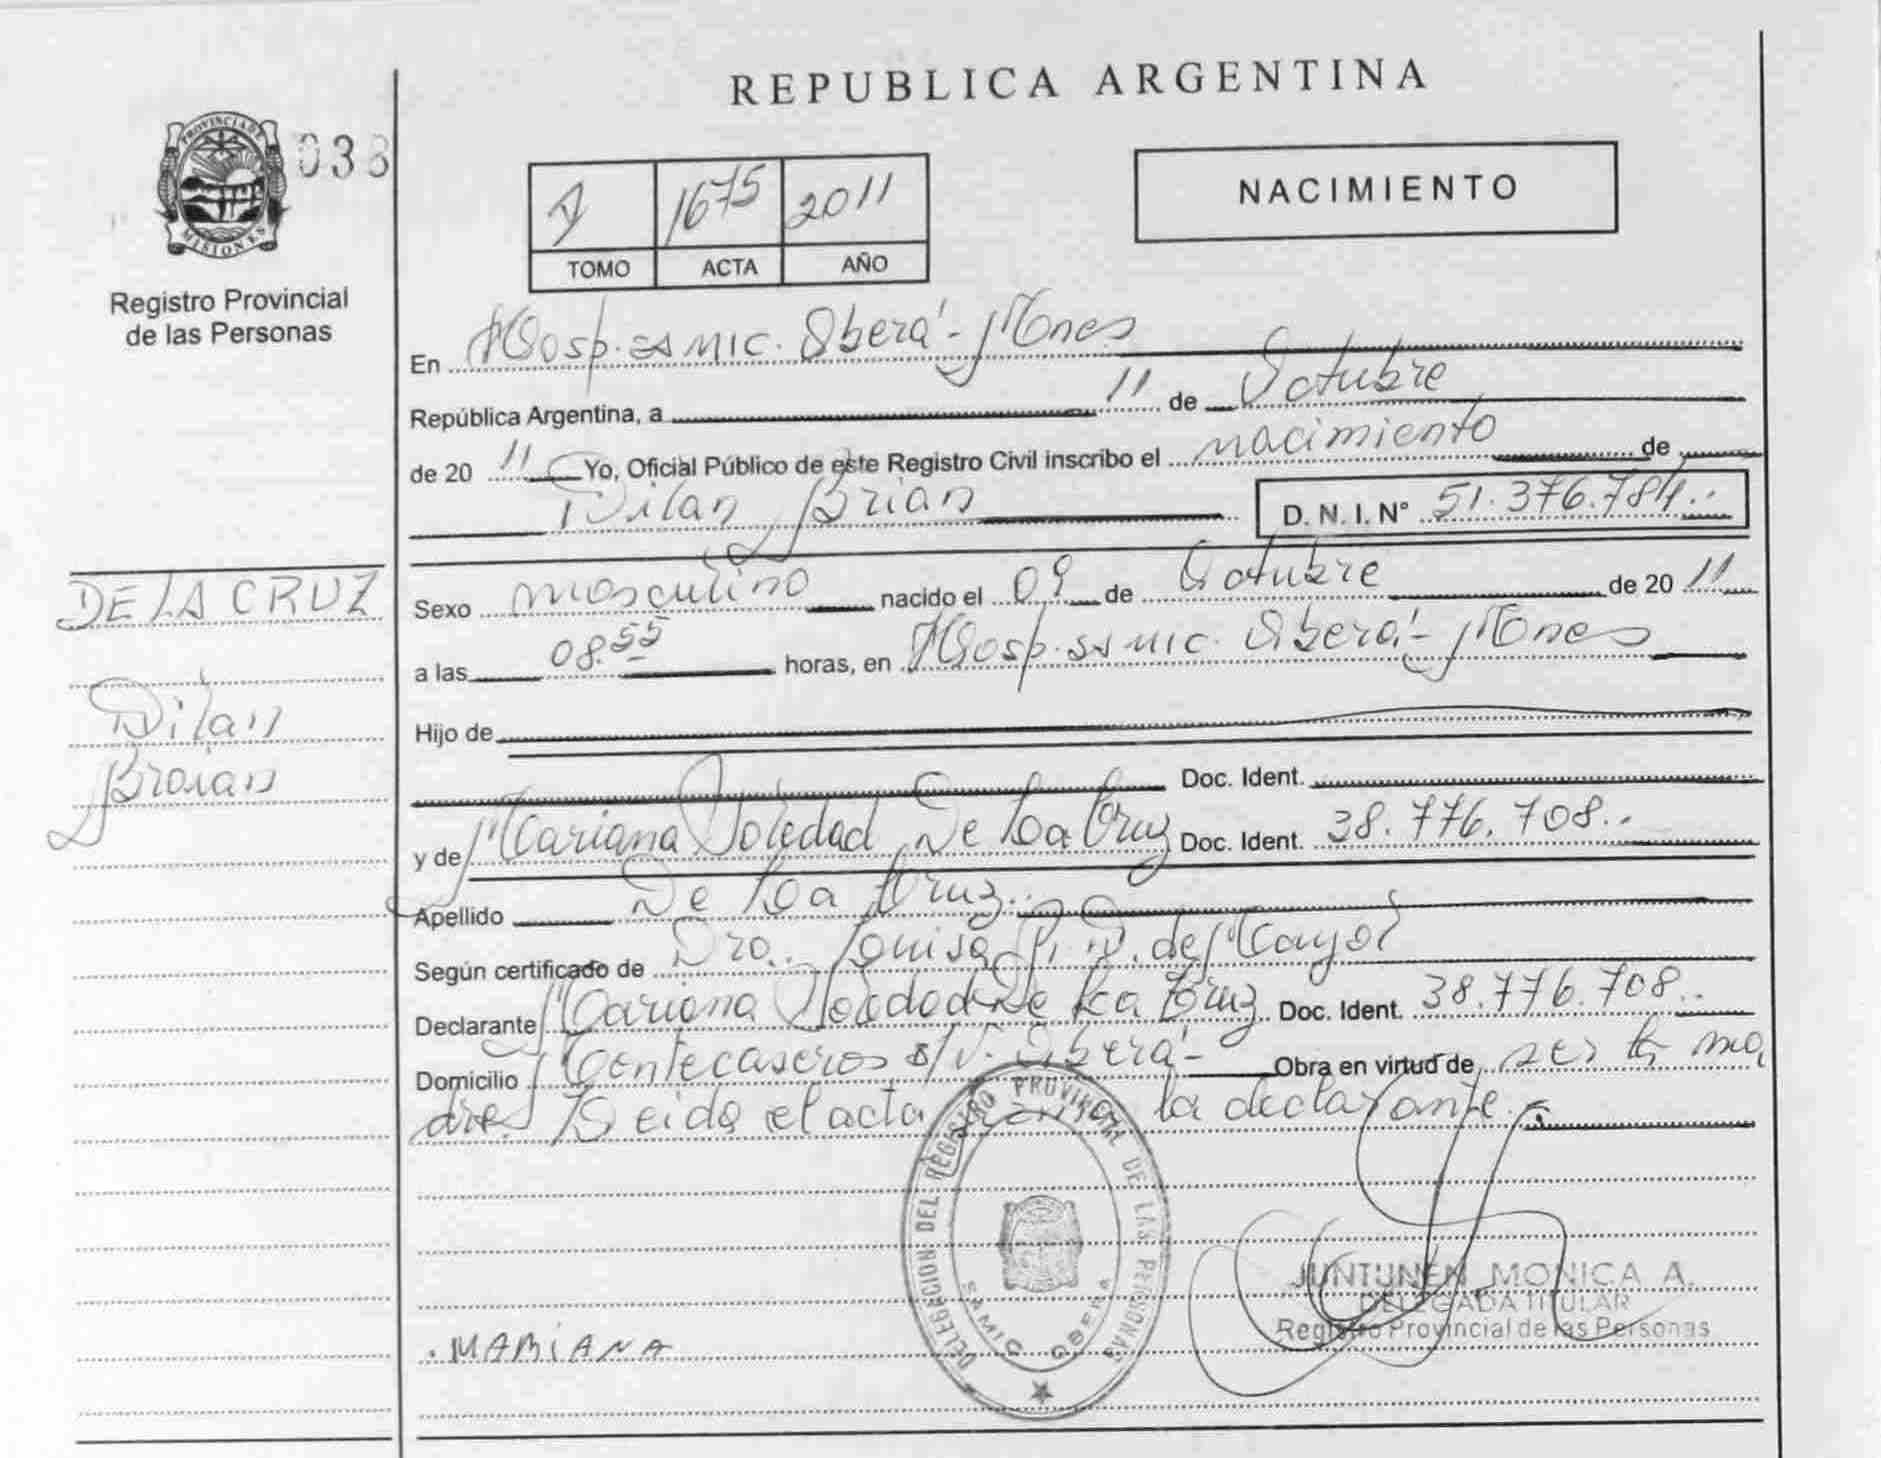 REPUBLICA ARGENTINA
PROVINCIA DE
MISIONES
038
Registro Provincial
de las Personas
1675 2011
TOMO ACTA AÑO
NACIMIENTO
En Hosp. SAMIC. Oberá - Mnes
República Argentina, a 11 de Octubre
de 20 11 Yo, Oficial Público de este Registro Civil inscribo el nacimiento de
Dilan Brian D. N. I. N° 51.376.784..
DE LA CRUZ
Dilan
Brian
Sexo masculino nacido el 09 de Octubre de 20 11
a las 08.55 horas, en Hosp. SAMIC. Oberá - Mnes
Hijo de
Doc. Ident.
y de Mariana Soledad De La Cruz Doc. Ident. 38.776.708..
Apellido De La Cruz..
Según certificado de Dra. Louisa de Mayol
Declarante Mariana Soledad De La Cruz Doc. Ident. 38.776.708..
Domicilio Montecaseros s/N. Oberá - Obra en virtud de ser la ma
dre. Leida el acta firma la declarante.
DELEGACION DEL REGISTRO PROVINCIAL DE LAS PERSONAS
SAMIC OBERA
JUNTUNEN MONICA A.
DELEGADA TITULAR
Registro Provincial de las Personas
. MARIANA